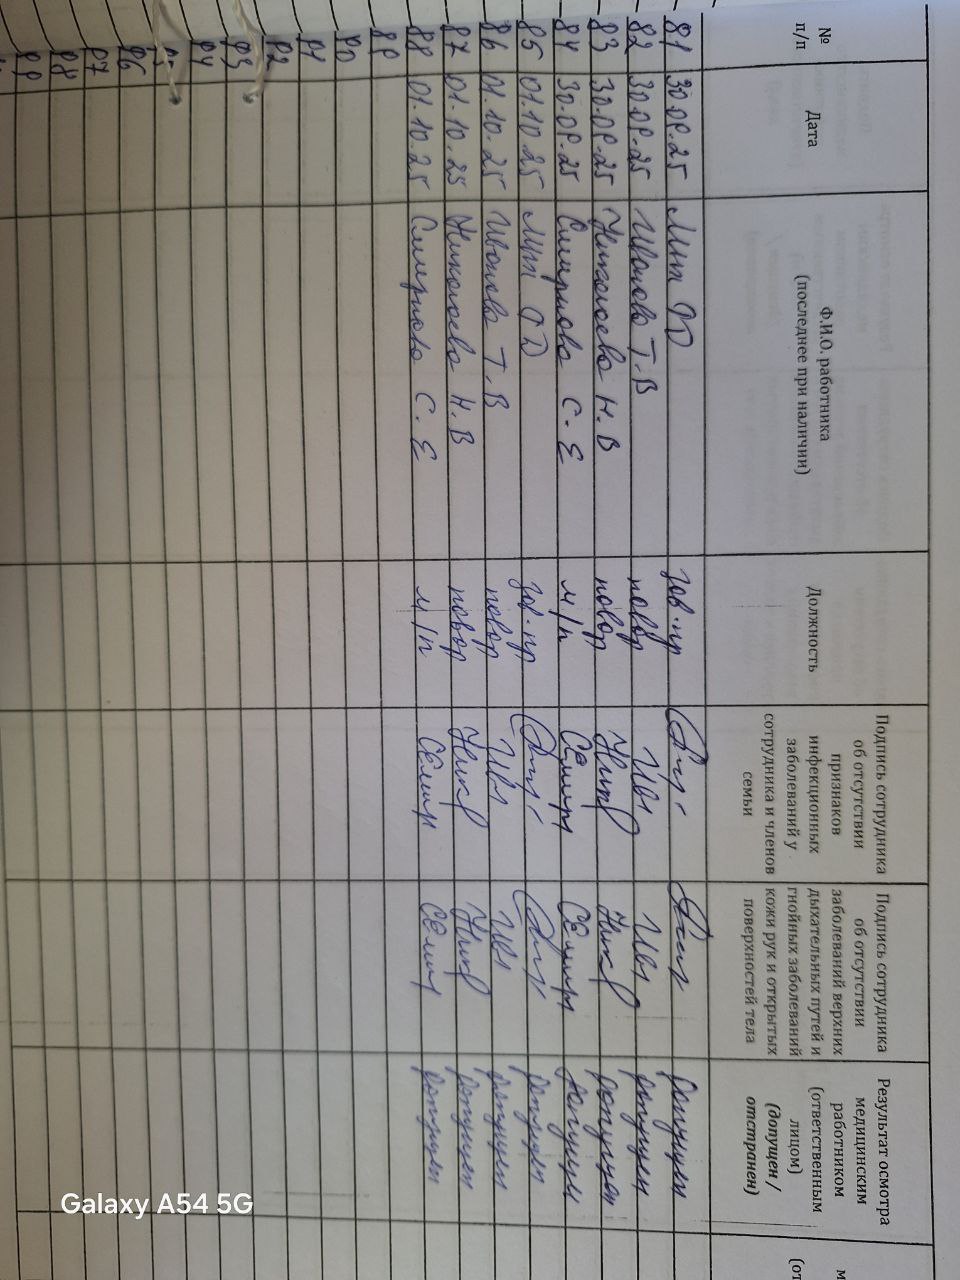 № п/п Дата Ф.И.О. работника (последнее при наличии) Должность Подпись сотрудника об отсутствии признаков инфекционных заболеваний у сотрудника и членов семьи Подпись сотрудника об отсутствии заболеваний верхних дыхательных путей и гнойных заболеваний кожи рук и открытых поверхностей тела Результат осмотра медицинским работником (ответственным лицом) (допущен / отстранен)
81 30.09.25 зав.пр допущен
82 30.09.25 Иванова Т.В повар Ив допущен
83 30.09.25 Николаева Н.В повар Ник допущен
84 30.09.25 Смирнова С.Е м/п СЕмир СЕмир допущен
85 01.10.25 зав.пр допущен
86 01.10.25 Иванова Т.В повар Ив допущен
87 01.10.25 Николаева Н.В повар Ник допущен
88 01.10.25 Смирнова С.Е м/п СЕмир допущен
89
90
91
92
93
94
95
96
97
98
99
Galaxy A54 5G